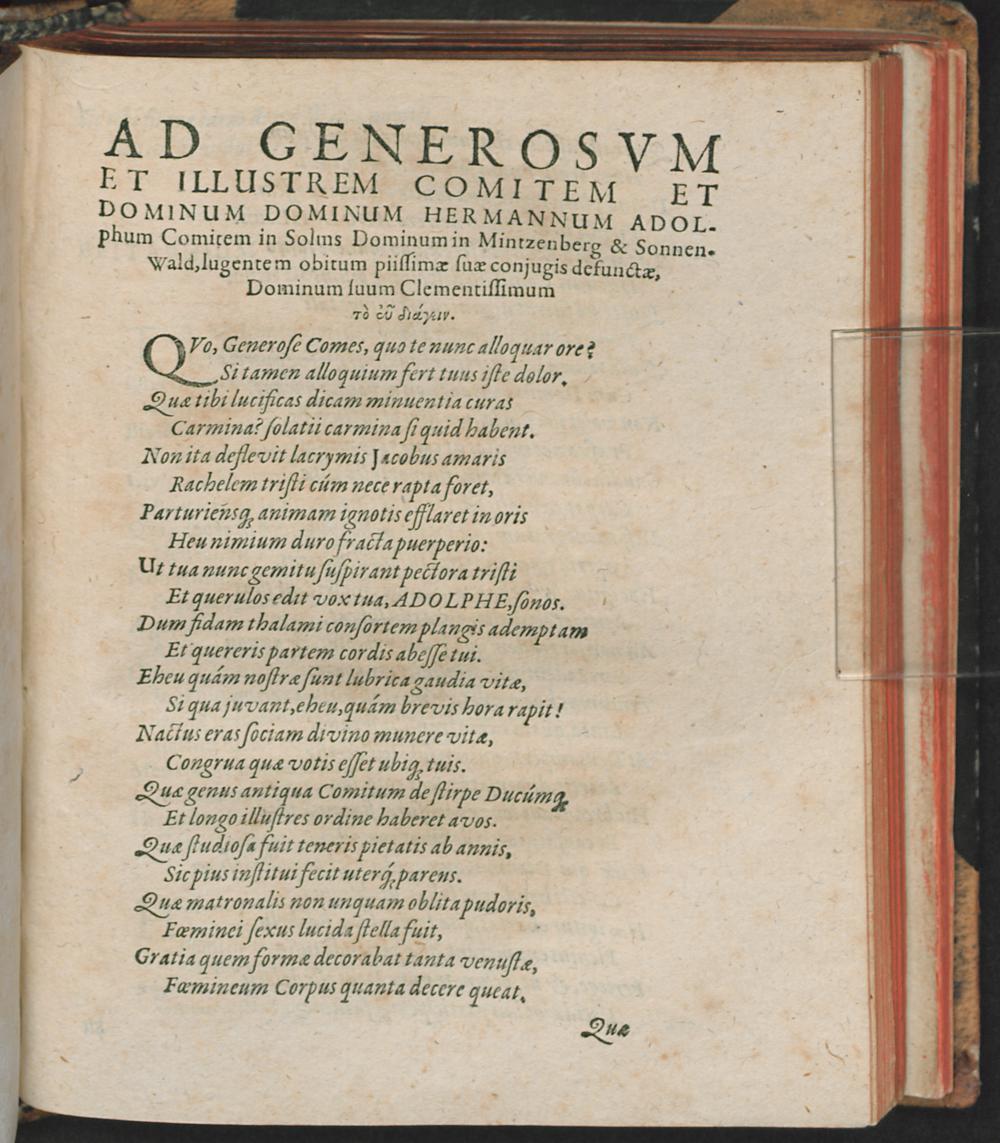 AD GENEROSVM
ET ILLUSTREM COMITEM ET
DOMINUM DOMINUM HERMANNUM ADOL-
phum Comitem in Solms Dominum in Mintzenberg & Sonnen-
Wald, lugentem obitum piissimæ suæ conjugis defunctæ,
Dominum suum Clementissimum
τὸ εὖ διάγειν.
QVo, Generose Comes, quo te nunc alloquar ore?
Si tamen alloquium fert tuus iste dolor.
Quæ tibi lucificas dicam minuentia curas
Carmina? solatii carmina si quid habent.
Non ita deflevit lacrymis Jacobus amaris
Rachelem tristi cúm nece rapta foret,
Parturiensq; animam ignotis efflaret in oris
Heu nimium duro fracta puerperio:
Ut tua nunc gemitu suspirant pectora tristi
Et querulos edit vox tua, ADOLPHE, sonos.
Dum fidam thalami consortem plangis ademptam
Et quereris partem cordis abesse tui.
Eheu quám nostræ sunt lubrica gaudia vitæ,
Si qua juvant, eheu, quám brevis hora rapit!
Nactus eras sociam divino munere vitæ,
Congrua quæ votis esset ubiq; tuis.
Quæ genus antiqua Comitum de stirpe Ducúmq;
Et longo illustres ordine haberet avos.
Quæ studiosa fuit teneris pietatis ab annis,
Sic pius institui fecit uterq́; parens.
Quæ matronalis non unquam oblita pudoris,
Fœminei sexus lucida stella fuit,
Gratia quem formæ decorabat tanta venustæ,
Fœmineum Corpus quanta decere queat.
Quæ